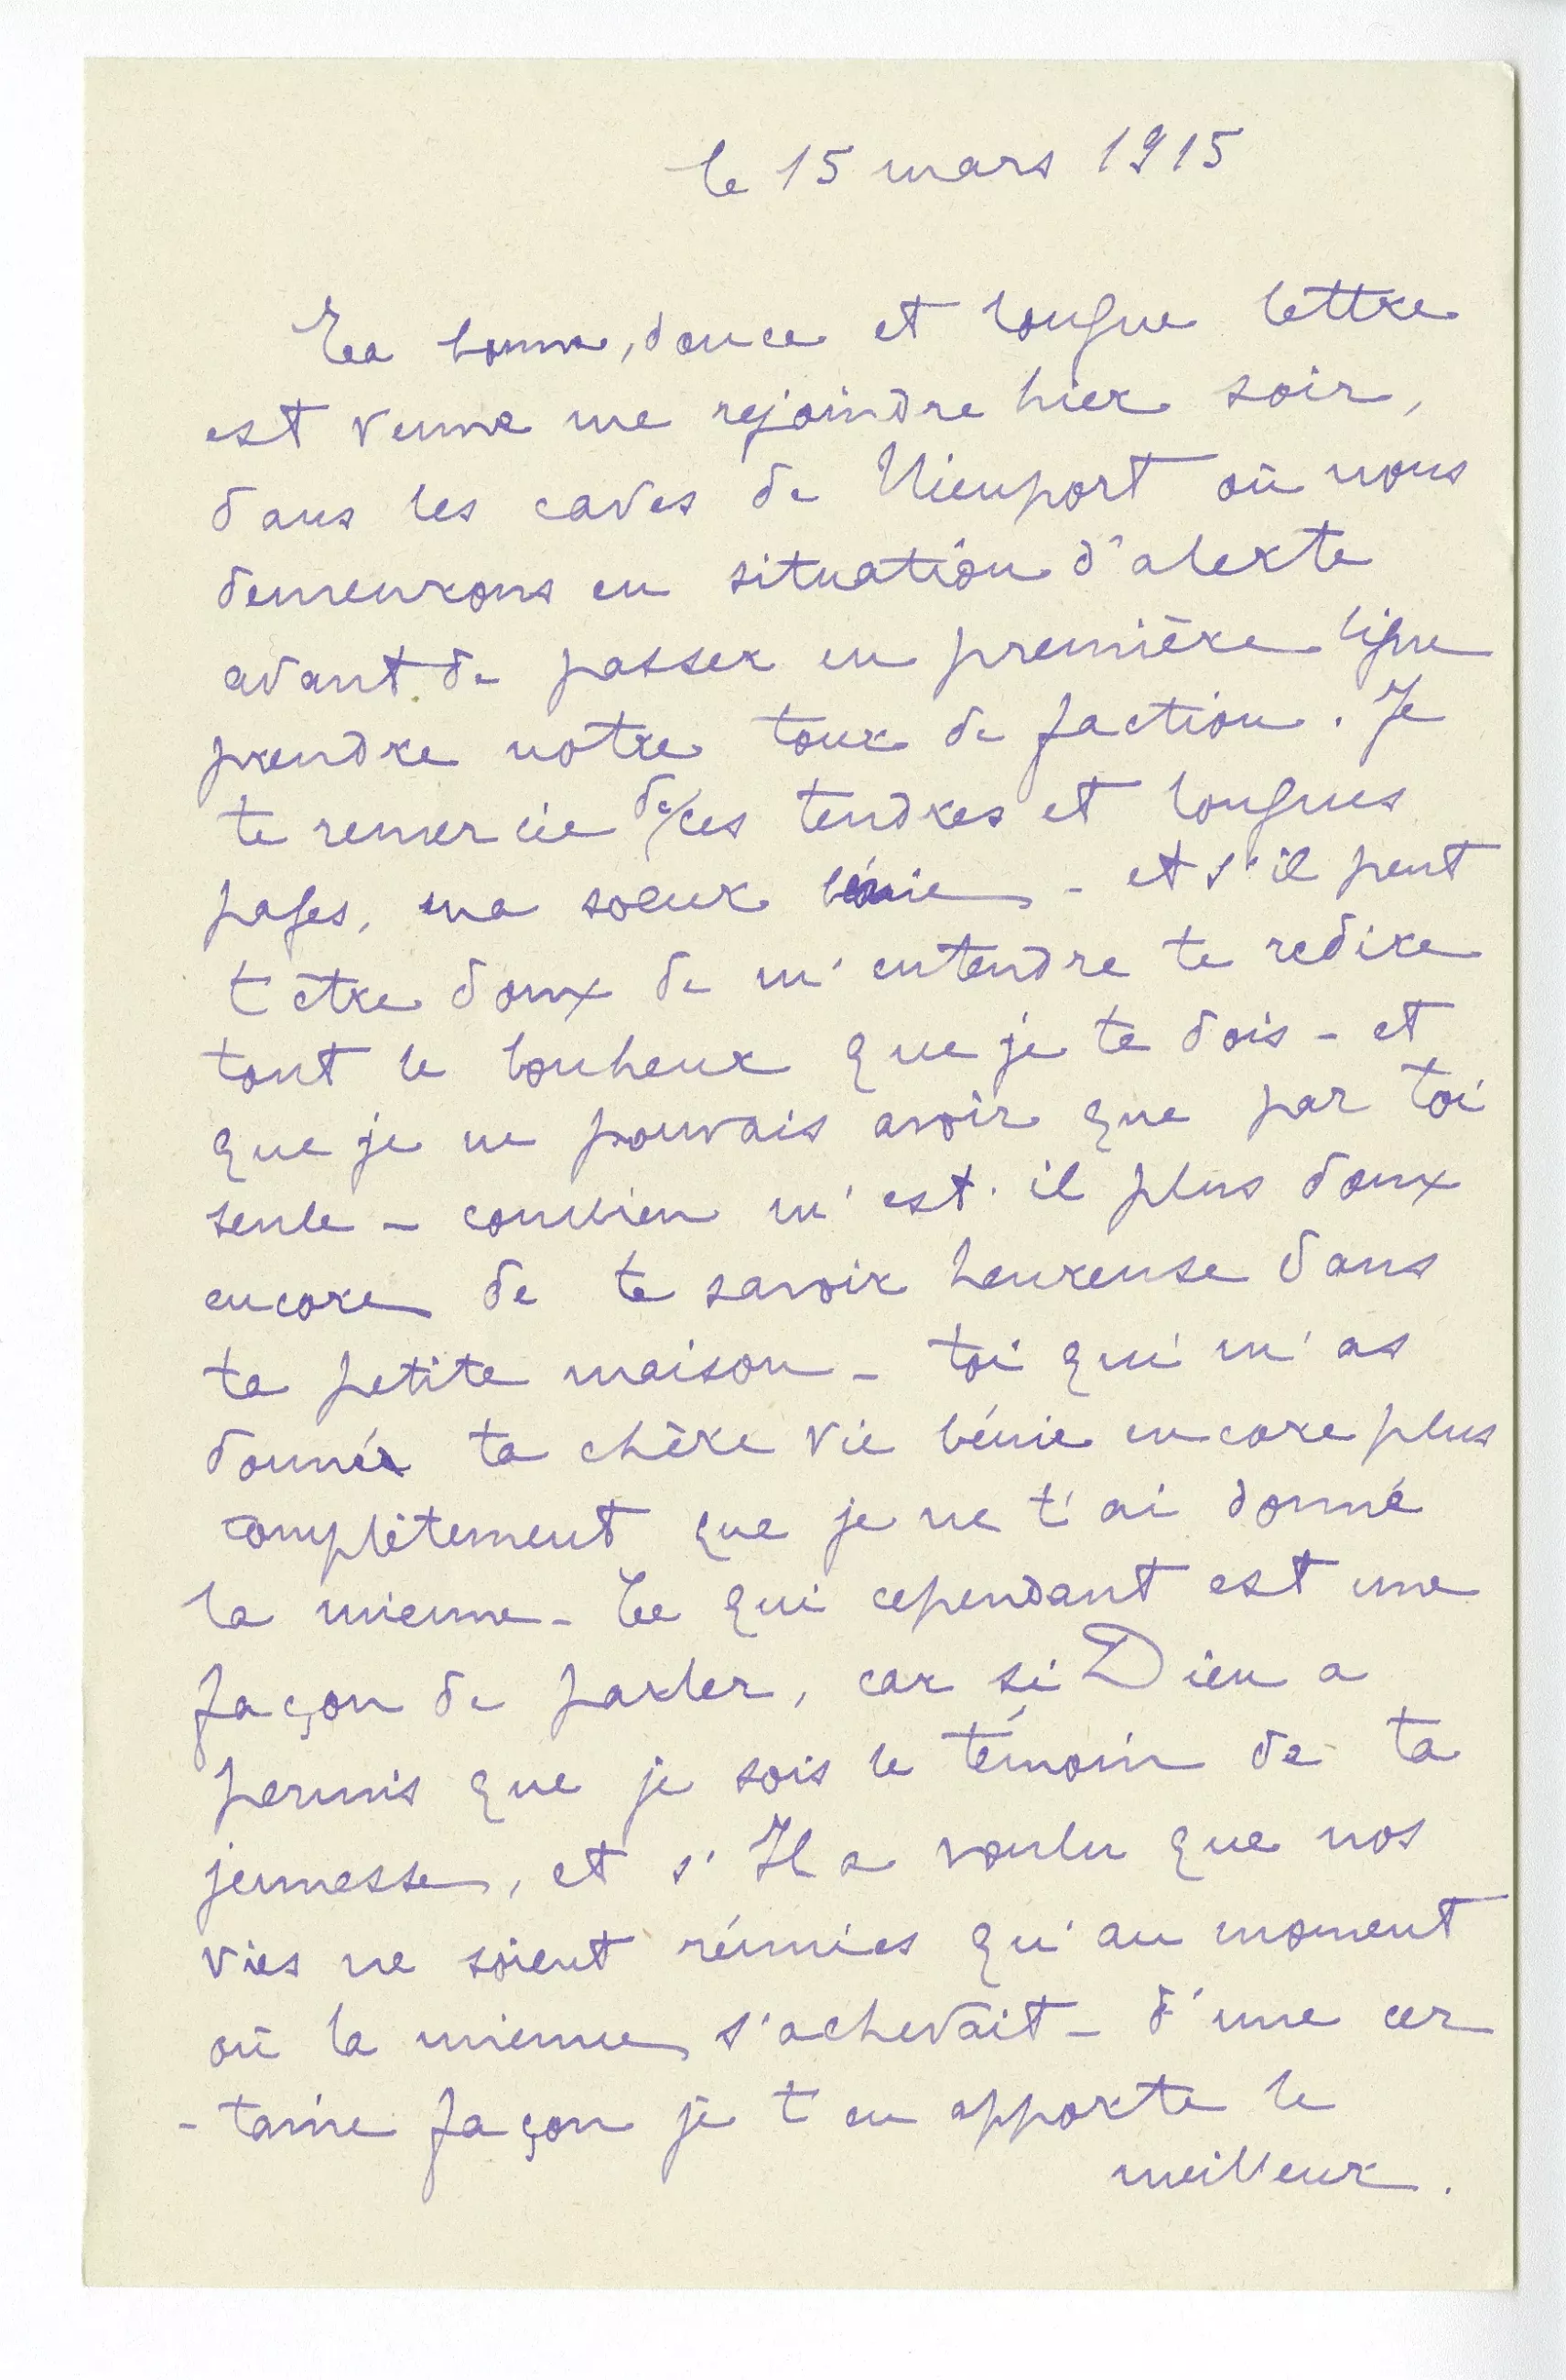 le 15 mars 1915
Ta bonne, douce et longue lettre
est venue me rejoindre hier soir,
dans les caves de Nieuport où nous
demeurons en situation d'alerte
avant de passer en première ligne
prendre notre tour de faction. Je
te remercie de ces tendres et longues
pages, ma soeur bénie - et s'il peut
t'être doux de m'entendre te redire
tout le bonheur que je te dois - et
que je ne pouvais avoir que par toi
seule - combien m'est-il plus doux
encore de te savoir heureuse dans
ta petite maison - toi qui m'as
donné ta chère vie bénie encore plus
complètement que je ne t'ai donné
la mienne - Ce qui cependant est une
façon de parler, car si Dieu a
permis que je sois le témoin de ta
jeunesse, et s'Il a voulu que nos
vies ne soient réunies qu'au moment
où la mienne s'achevait - d'une cer
-taine façon je t'en apporte le
meilleur.